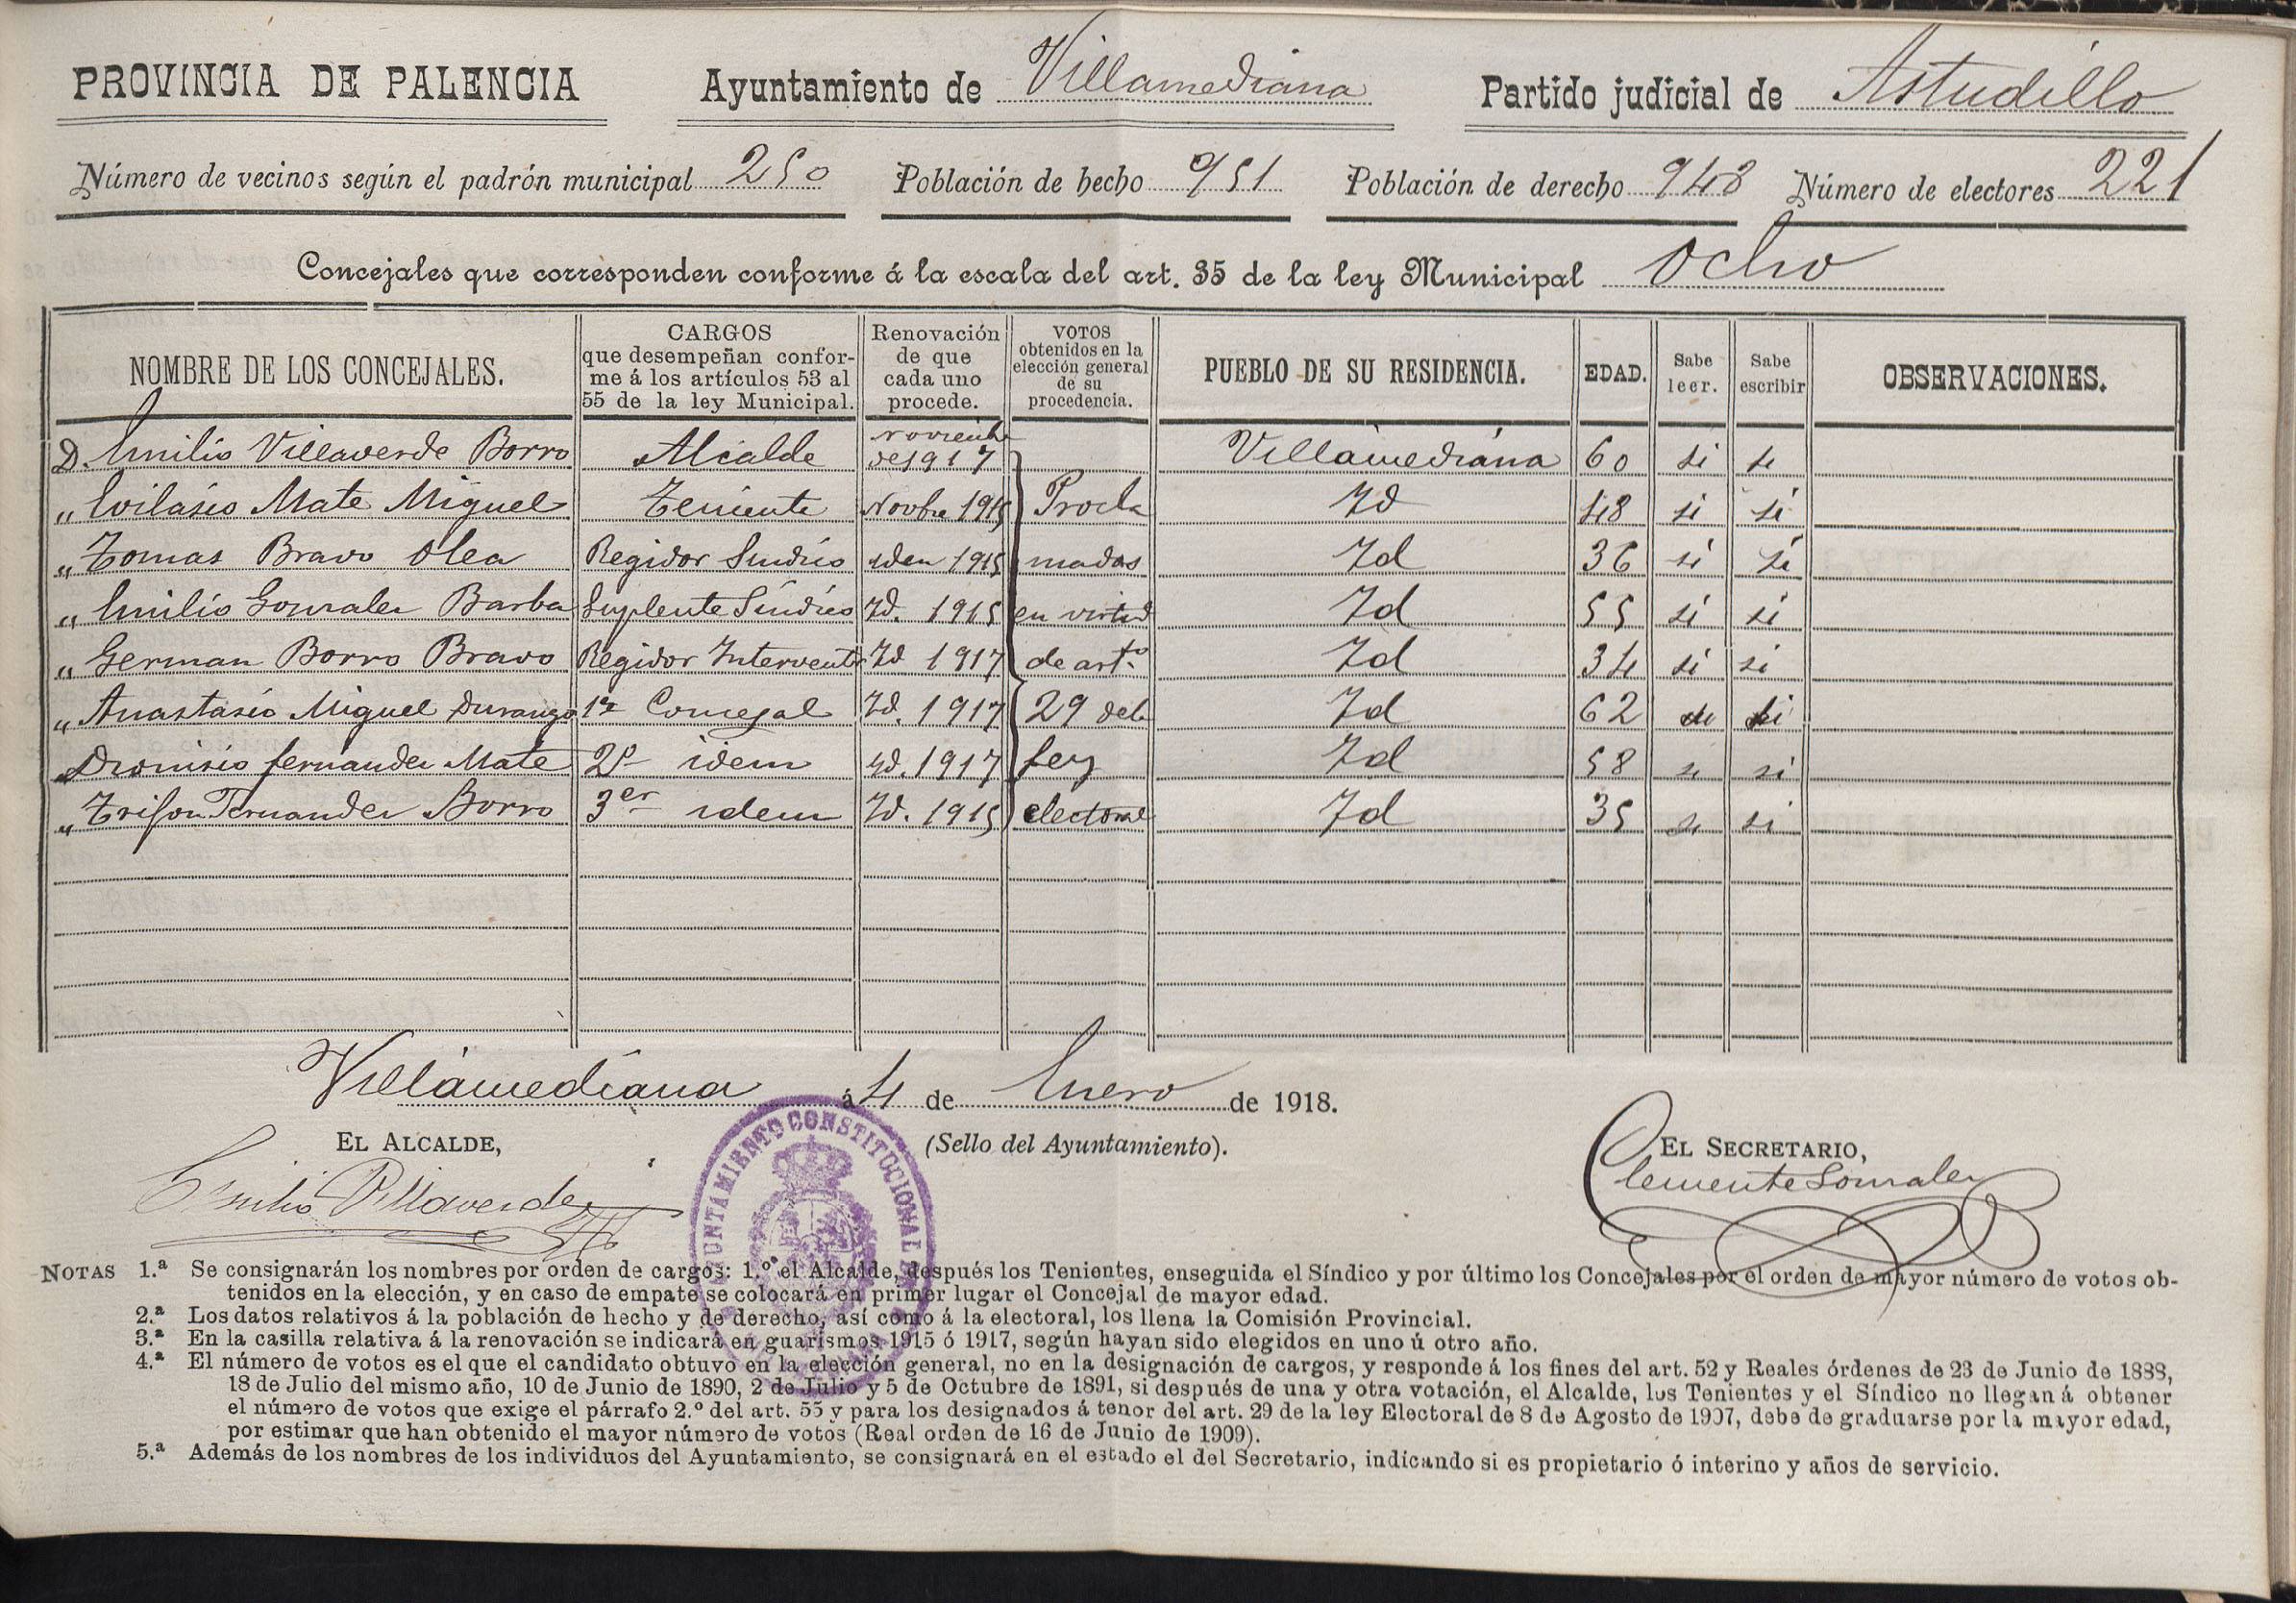 PROVINCIA DE PALENCIA Ayuntamiento de Villamediana Partido judicial de Astudillo
Número de vecinos según el padrón municipal 250 Población de hecho 951 Población de derecho 948 Número de electores 221
Concejales que corresponden conforme á la escala del art. 35 de la ley Municipal Ocho
NOMBRE DE LOS CONCEJALES. CARGOS que desempeñan conforme á los artículos 53 al 55 de la ley Municipal. Renovación de que cada uno procede. VOTOS obtenidos en la elección general de su procedencia. PUEBLO DE SU RESIDENCIA. EDAD. Sabe leer. Sabe escribir OBSERVACIONES.
D. Emilio Villaverde Borro Alcalde Noviembre de 1917 Villamediana 60 si si
" Evilasio Mate Miguel Teniente Novbre 1915 Procla Id 48 si si
" Tomas Bravo Olea Regidor Sindico iden 1915 mados Id 36 si si
" Emilio Gonzalez Barba Suplente Síndico Id. 1915 en virtud Id 55 si si
" German Borro Bravo Regidor Interventor Id 1917 de artº Id 34 si si
" Anastasio Miguel Durango 1er Concejal Id. 1917 29 dela Id 62 si si
" Dionisio fernandez Mate 2º idem id. 1917 ley Id 58 si si
" Trifon Fernandez Borro 3er idem Id. 1915 electoral Id 35 si si
Villamediana á 4 de Enero de 1918.
EL ALCALDE, (Sello del Ayuntamiento). EL SECRETARIO,
Emilio Villaverde Clemente Gonzalez
AYUNTAMIENTO CONSTITUCIONAL
NOTAS 1.ª Se consignarán los nombres por orden de cargos: 1.º el Alcalde, después los Tenientes, enseguida el Síndico y por último los Concejales por el orden de mayor número de votos ob-
tenidos en la elección, y en caso de empate se colocará en primer lugar el Concejal de mayor edad.
2.ª Los datos relativos á la población de hecho y de derecho, así como á la electoral, los llena la Comisión Provincial.
3.ª En la casilla relativa á la renovación se indicará en guarismos 1915 ó 1917, según hayan sido elegidos en uno ú otro año.
4.ª El número de votos es el que el candidato obtuvo en la elección general, no en la designación de cargos, y responde á los fines del art. 52 y Reales órdenes de 23 de Junio de 1888,
18 de Julio del mismo año, 10 de Junio de 1890, 2 de Julio y 5 de Octubre de 1891, si después de una y otra votación, el Alcalde, los Tenientes y el Síndico no llegan á obtener
el número de votos que exige el párrafo 2.º del art. 55 y para los designados á tenor del art. 29 de la ley Electoral de 8 de Agosto de 1907, debe de graduarse por la mayor edad,
por estimar que han obtenido el mayor número de votos (Real orden de 16 de Junio de 1909).
5.ª Además de los nombres de los individuos del Ayuntamiento, se consignará en el estado el del Secretario, indicando si es propietario ó interino y años de servicio.